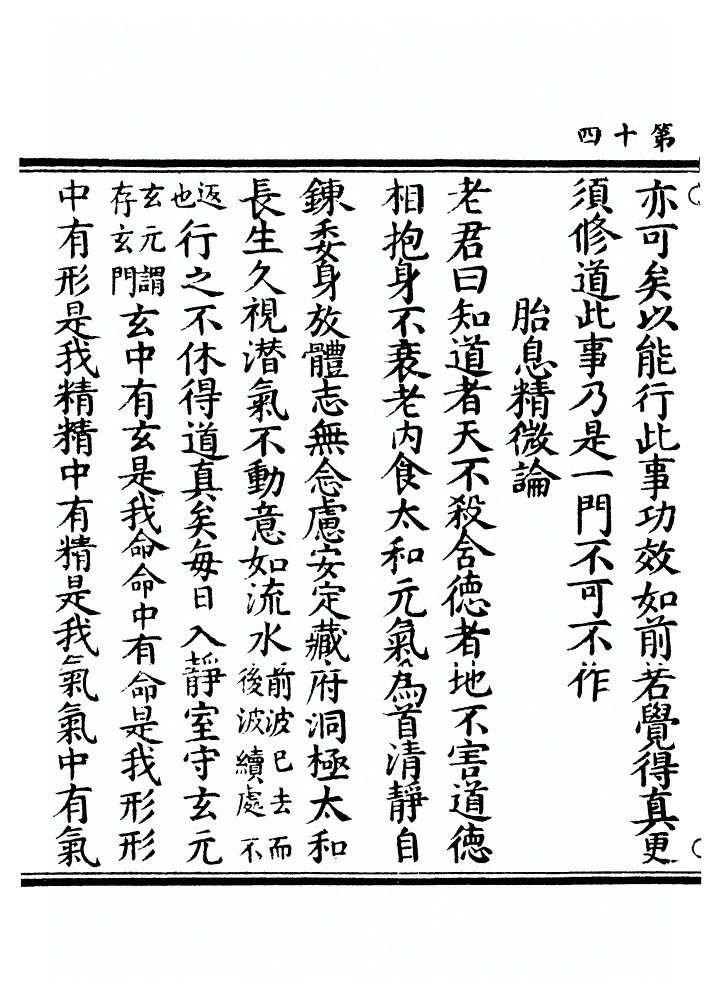 第十四
亦可矣以能行此事功效如前若覺得真更
須修道此事乃是一門不可不作
胎息精微論
老君曰知道者天不殺含德者地不害道德
相抱身不衰老內食太和元氣為首清靜自
鍊委身放體志無念慮安定藏府洞極太和
長生久視潛氣不動意如流水前波已去而後波續處不
返也行之不休得道真矣每日入靜室守玄元
玄元謂存玄門玄中有玄是我命命中有命是我形形
中有形是我精精中有精是我氣氣中有氣